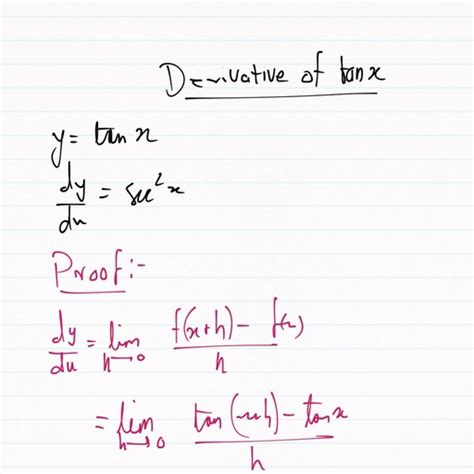 Derivative of tan x
y = tan x
dy/dx = sec²x
Proof:-
dy/dx = lim h→0 f(x+h) - f(x) / h
= lim h→0 tan(x+h) - tan x / h